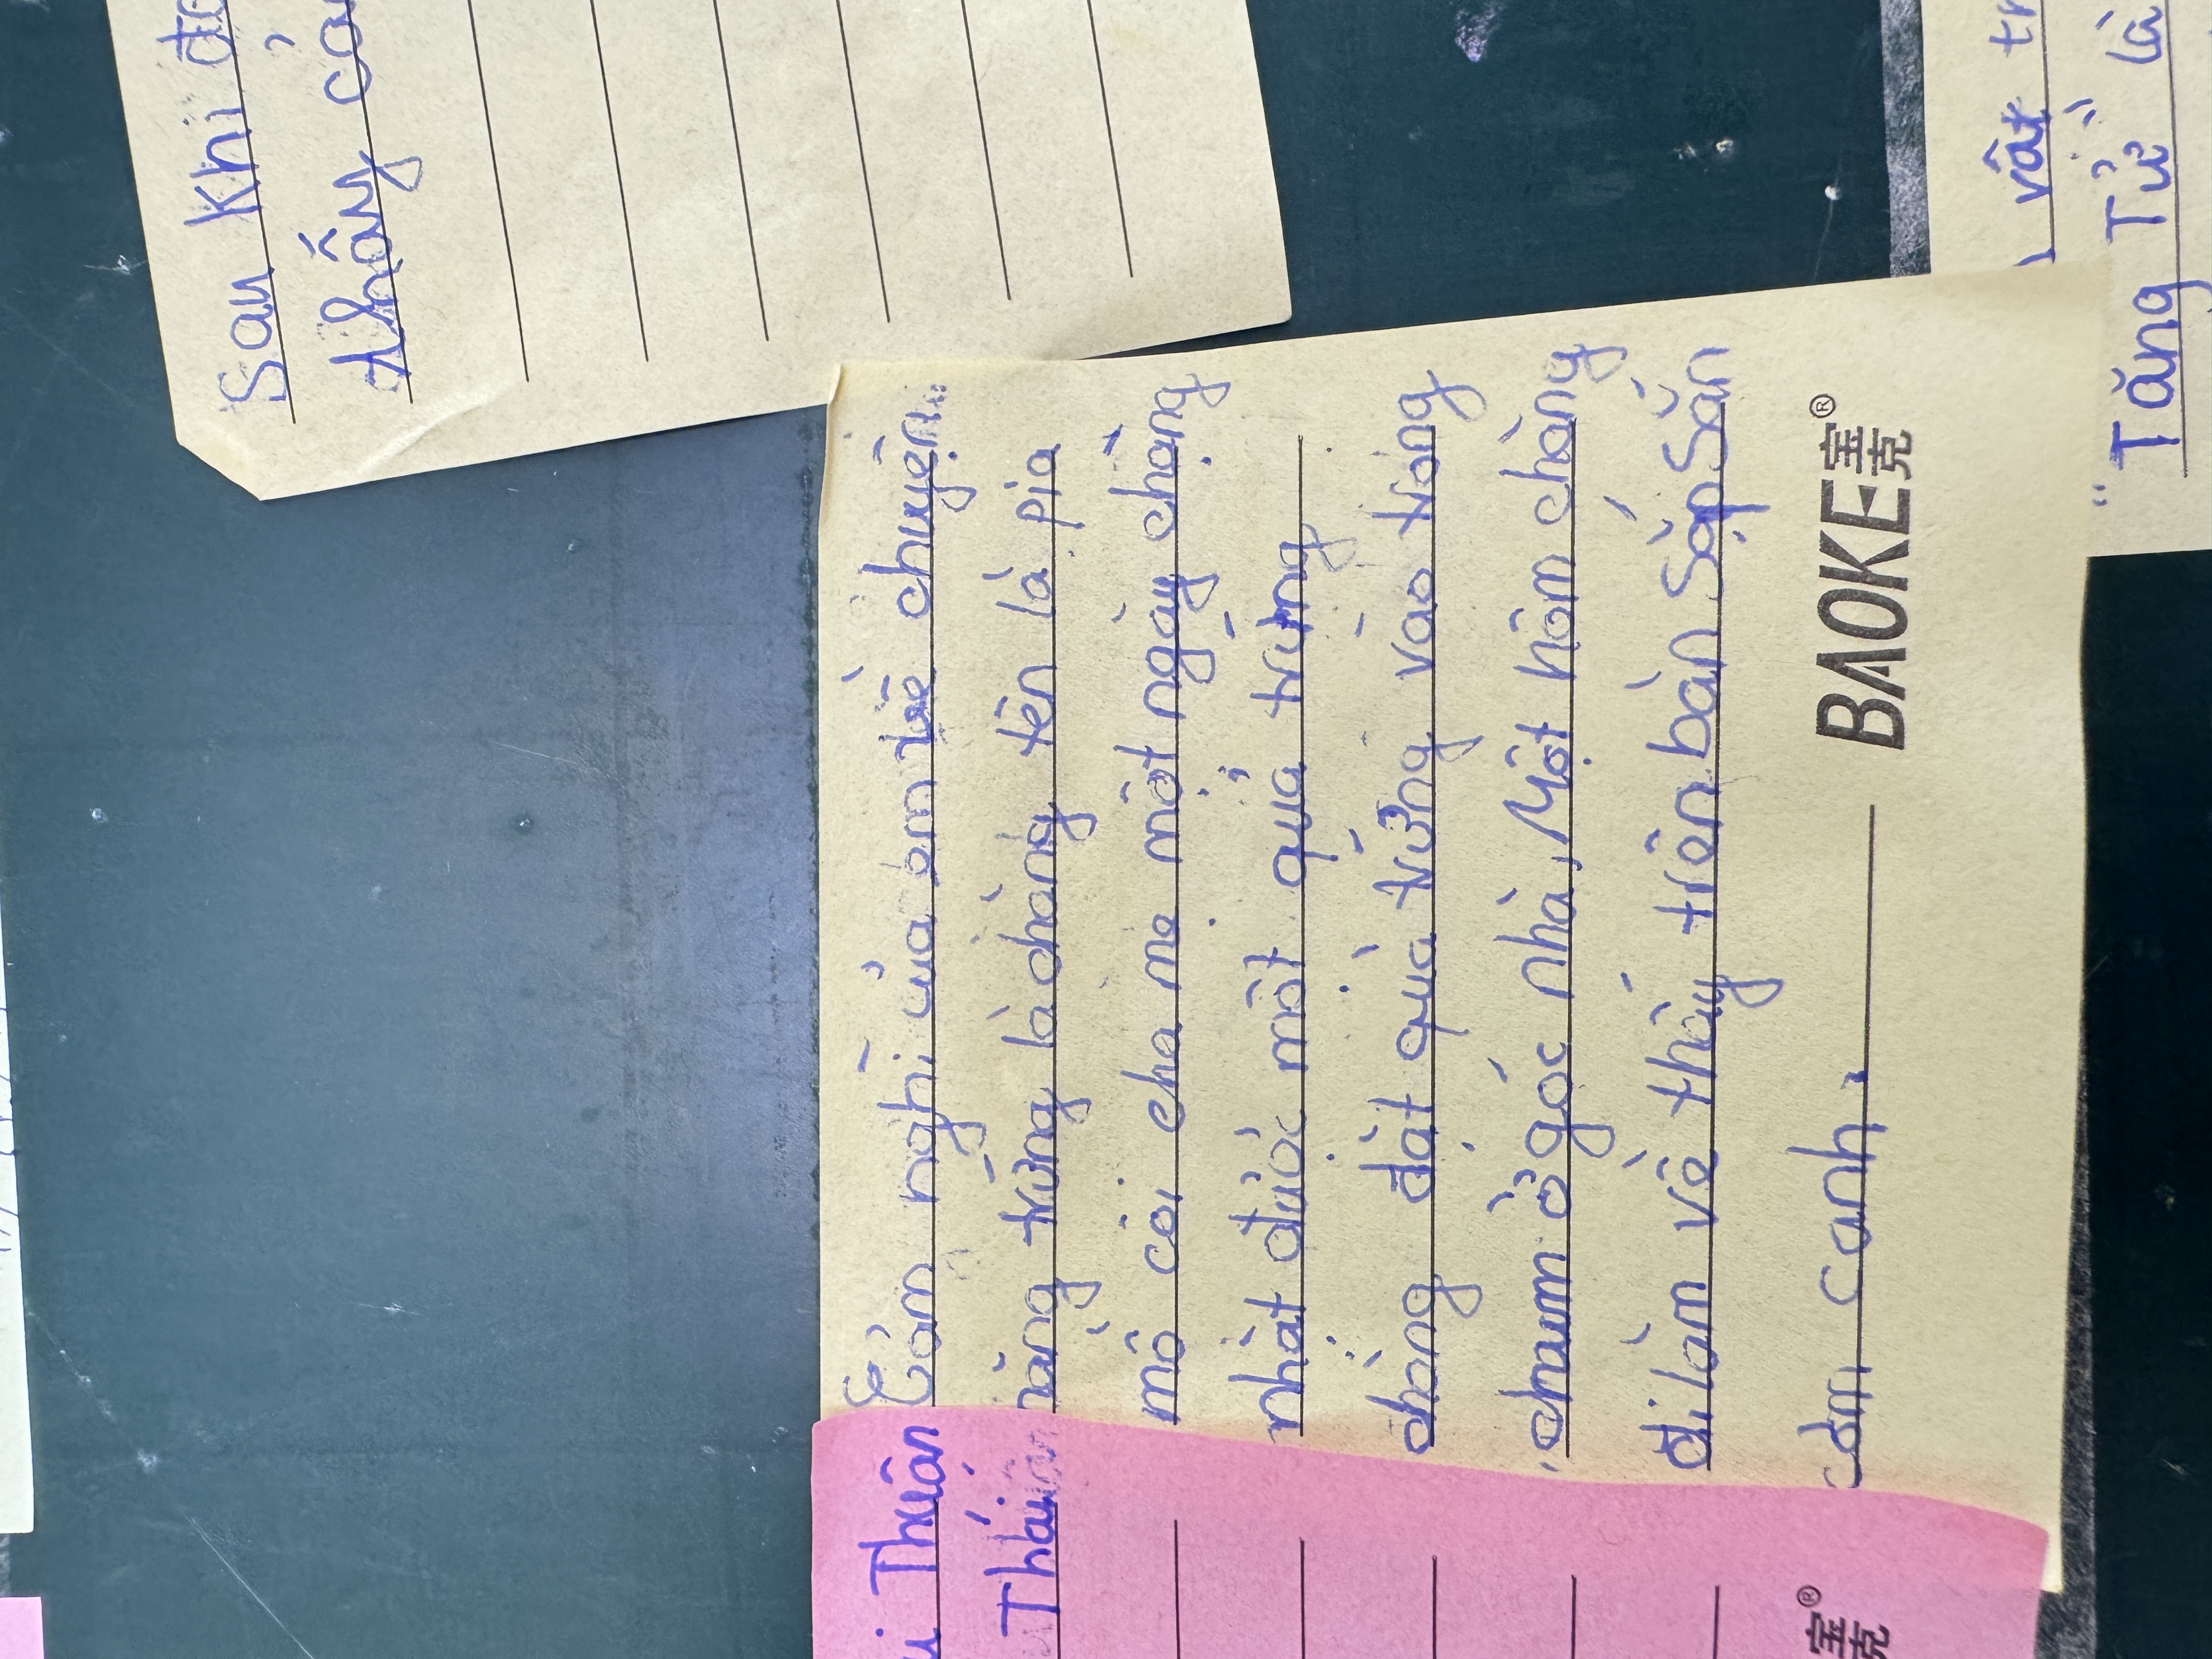 Sau khi đọ
thấy cả
Cảm nghĩ của em về chuyện
nàng trứng là chàng tên là pịa
mồ côi cha mẹ một ngày chàng
nhặt được một quả trứng
chàng đặt quả trứng vào trong
chum ở góc nhà, Một hôm chàng
đi làm về thấy trên bàn sắp sẵn
cơm canh.
BAOKE宝克®
ui Thuân
Thái
宝克®
vật tr
"Tăng Tử" là